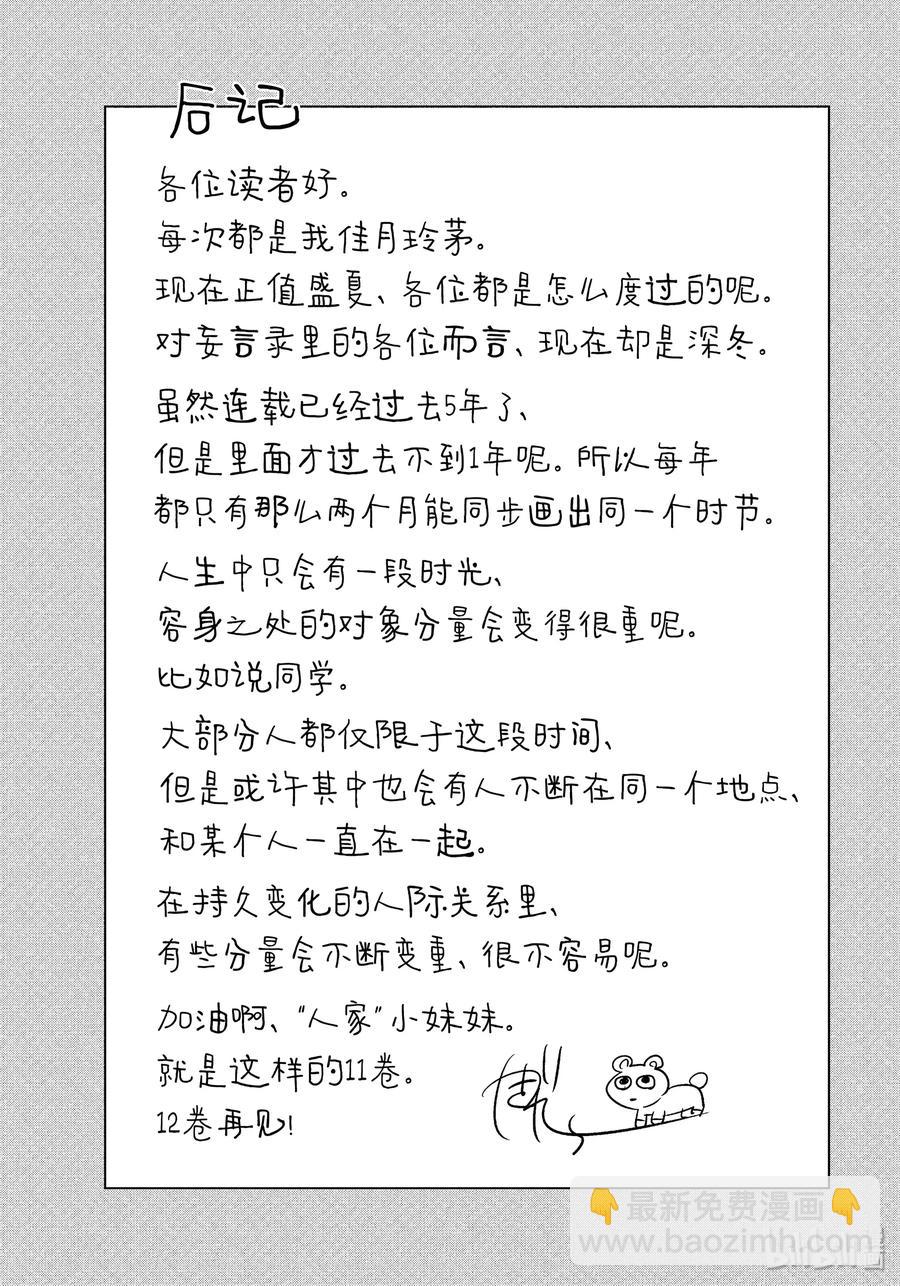 后记
各位读者好。
每次都是我佳月玲茅。
现在正值盛夏、各位都是怎么度过的呢。
对妄言录里的各位而言、现在却是深冬。
虽然连载已经过去5年了、
但是里面才过去不到1年呢。所以每年
都只有那么两个月能同步画出同一个时节。
人生中只会有一段时光、
容身之处的对象分量会变得很重呢。
比如说同学。
大部分人都仅限于这段时间、
但是或许其中也会有人不断在同一个地点、
和某个人一直在一起。
在持久变化的人际关系里、
有些分量会不断变重、很不容易呢。
加油啊、“人家”小妹妹。
就是这样的11卷。
12卷再见!
👇最新免费漫画👇
www.baozimh.com